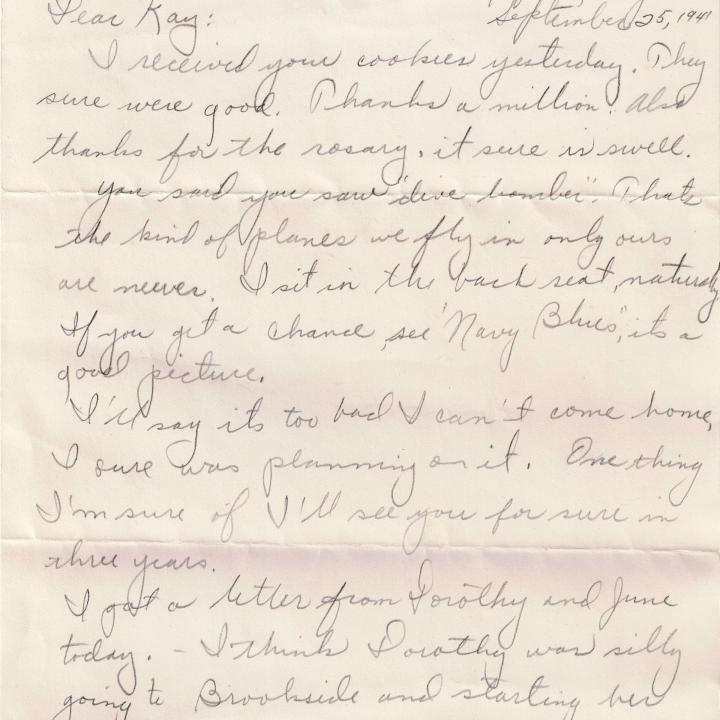 Dear Kay: September 25, 1941
I received your cookies yesterday. They
sure were good. Thanks a million. Also
thanks for the rosary, it sure is swell.
You said you saw "dive bomber". Thats
the kind of planes we fly in only ours
are newer. I sit in the back seat, naturally
If you get a chance, see "Navy Blues", its a
good picture.
I'll say its too bad I can't come home,
I sure was planning on it. One thing
I'm sure of I'll see you for sure in
three years.
I got a letter from Dorothy and June
today. - I think Dorothy was silly
going to Brookside and starting her